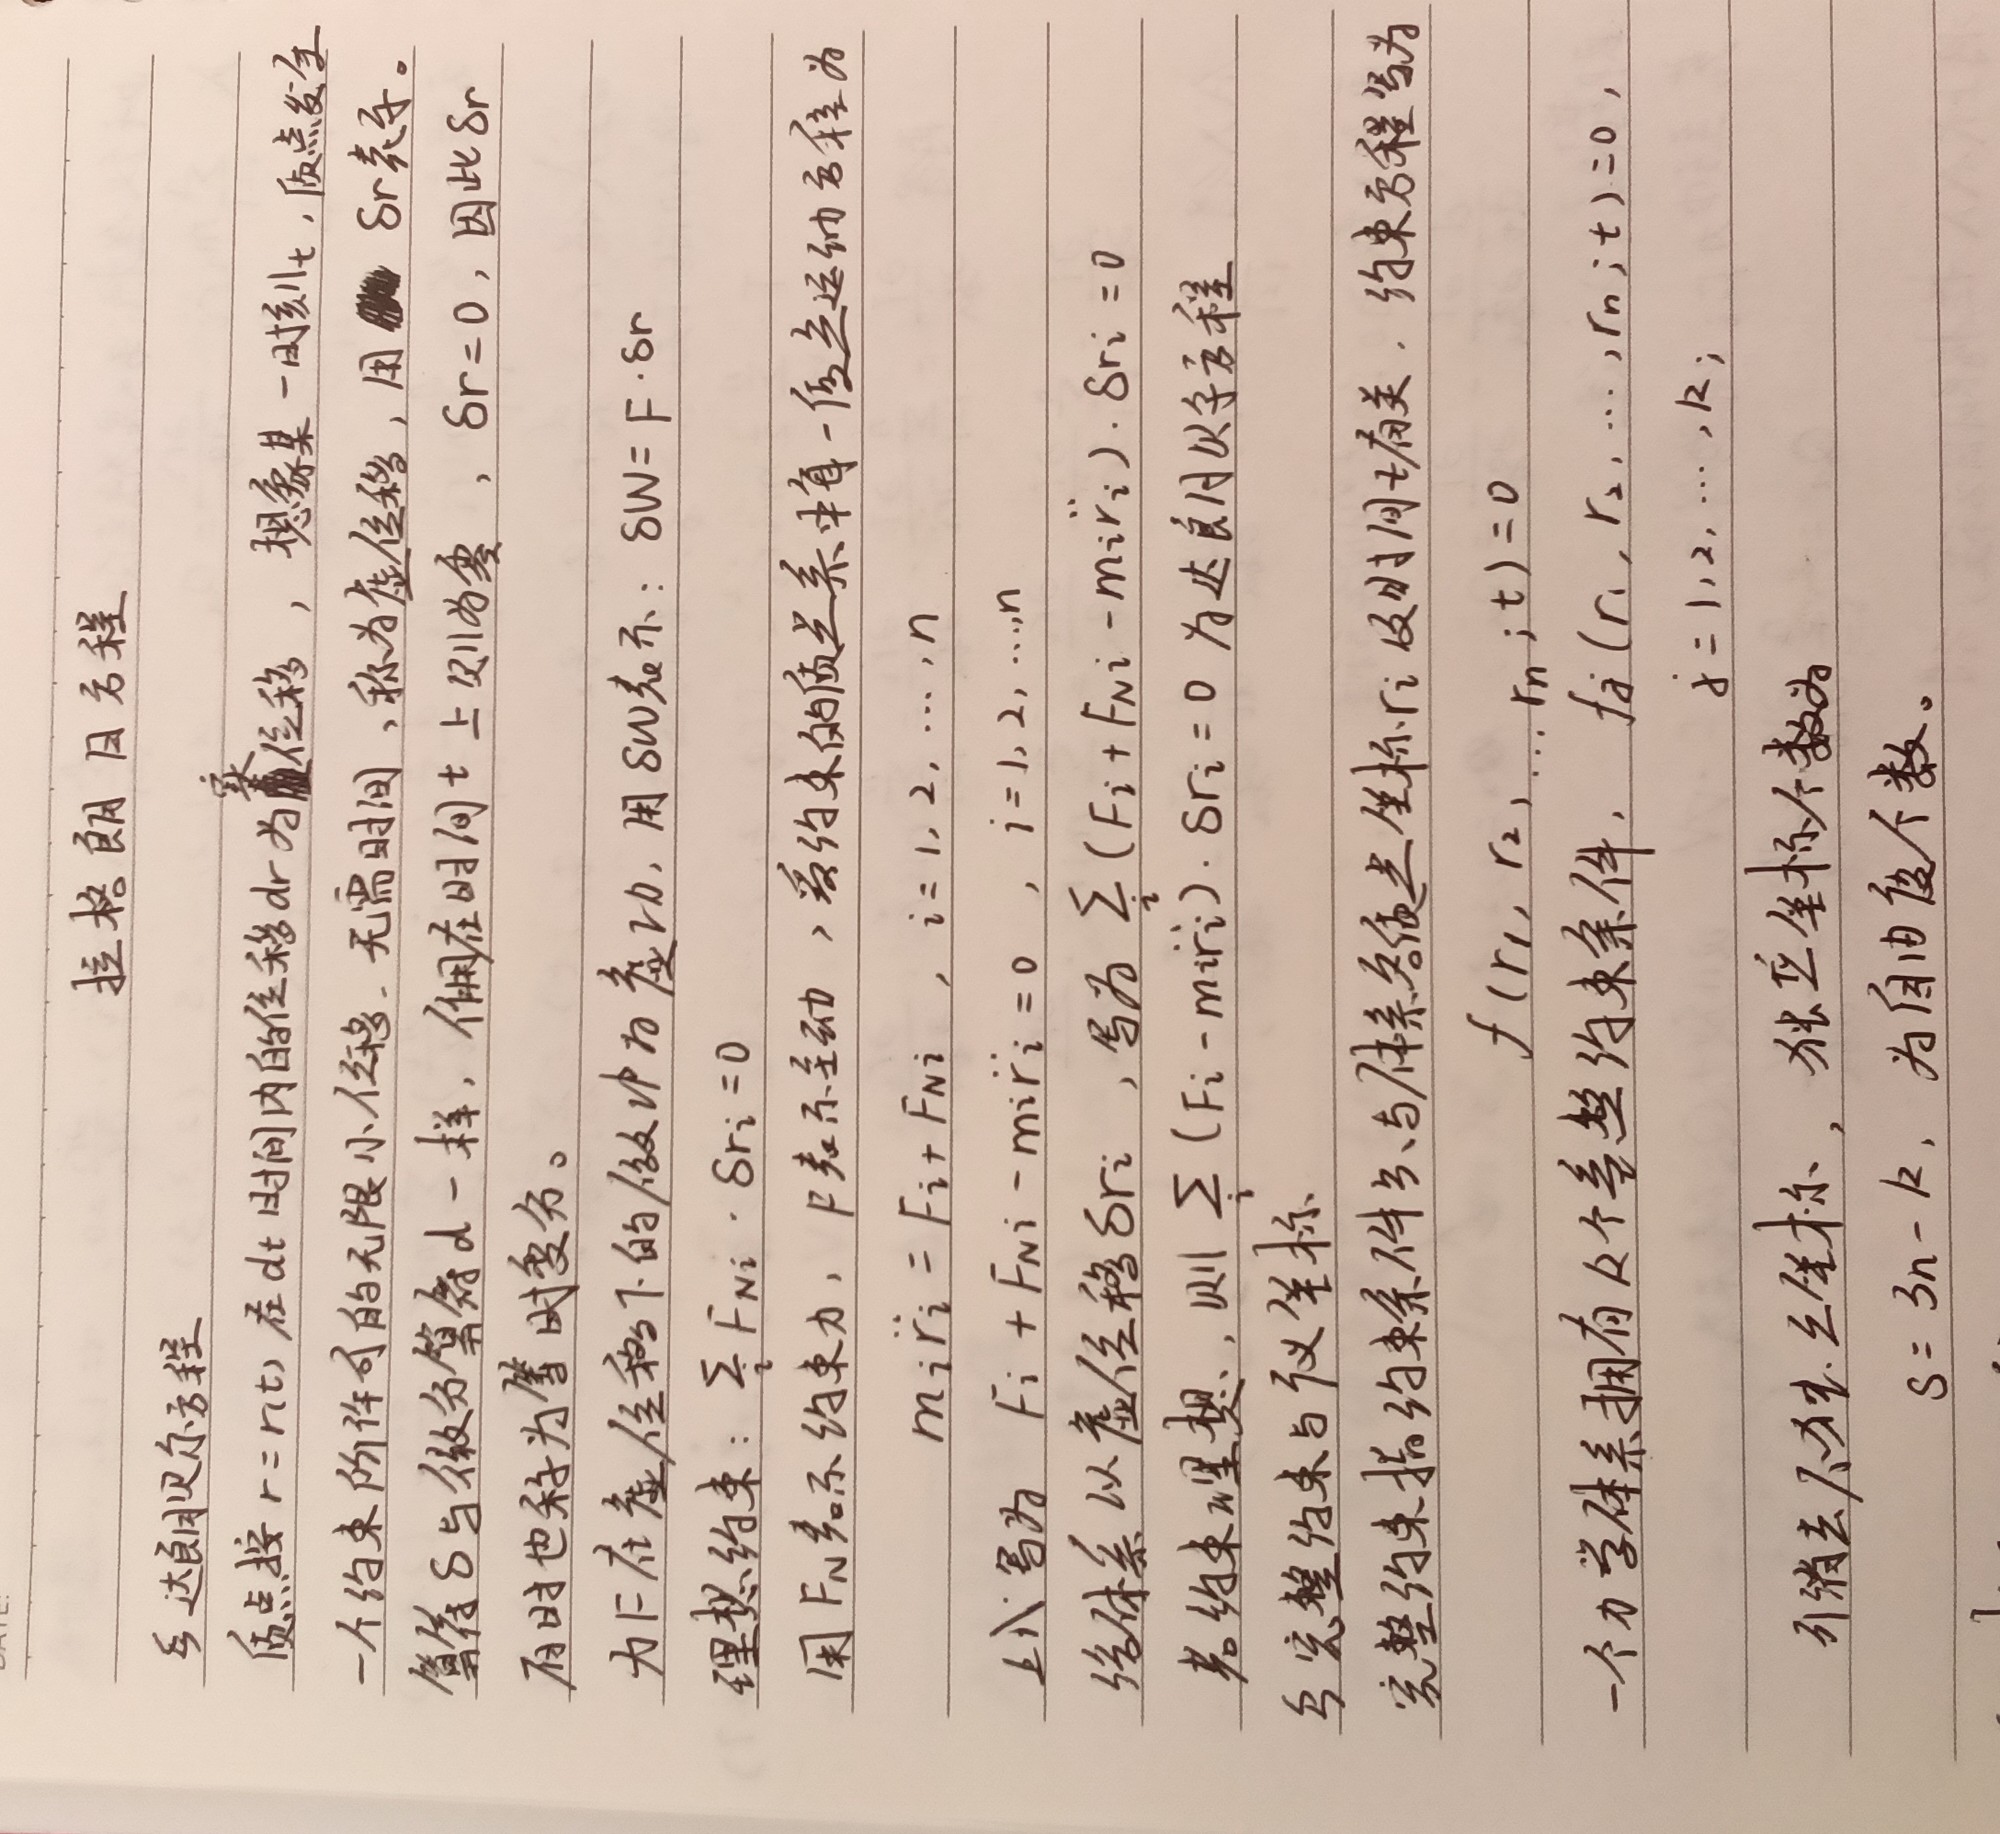 拉格朗日方程
§ 达朗贝尔方程
质点按r=r(t),在dt时间内的位移dr为实位移,想象某一时刻t,质点发生
一个约束所许可的无限小位移、无需时间,称为虚位移,用 δr表示。
算符δ与微分算符d一样,作用在时间t上则为零,δr=0,因此δr
有时也称为等时变分。
力F在虚位移下的做功为虚功,用δW表示:δW=F·δr
理想约束:∑i FNi·δri=0
用FN表示约束力,F表示主动,受约束的质点系中每一质点运动方程为
mir̈i=Fi+FNi,i=1,2,…,n
上式写为 Fi+FNi-mir̈i=0,i=1,2,…,n
给体系以虚位移δri,写为∑i(Fi+FNi-mir̈i)·δri=0
若约束理想,则∑i(Fi-mir̈i)·δri=0为达朗贝尔方程
§ 完整约束与广义坐标
完整约束指约束条件只与体系各质点坐标ri及时间t有关,约束方程写为
f(r1,r2,…rn;t)=0
一个力学体系拥有k个完整约束条件,fj(r1,r2,…,rn;t)=0,
j=1,2,…,k;
可消去不独立坐标,独立坐标个数为
s=3n-k,为自由度个数。